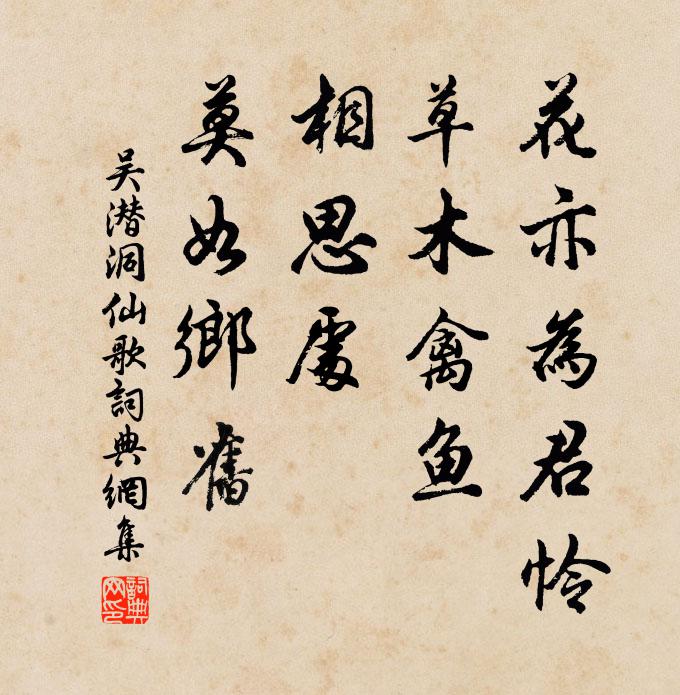 花亦為君怜
草木禽鱼
相思處
莫如鄉舊
吴潜洞仙歌詞典網集
詞典
网印